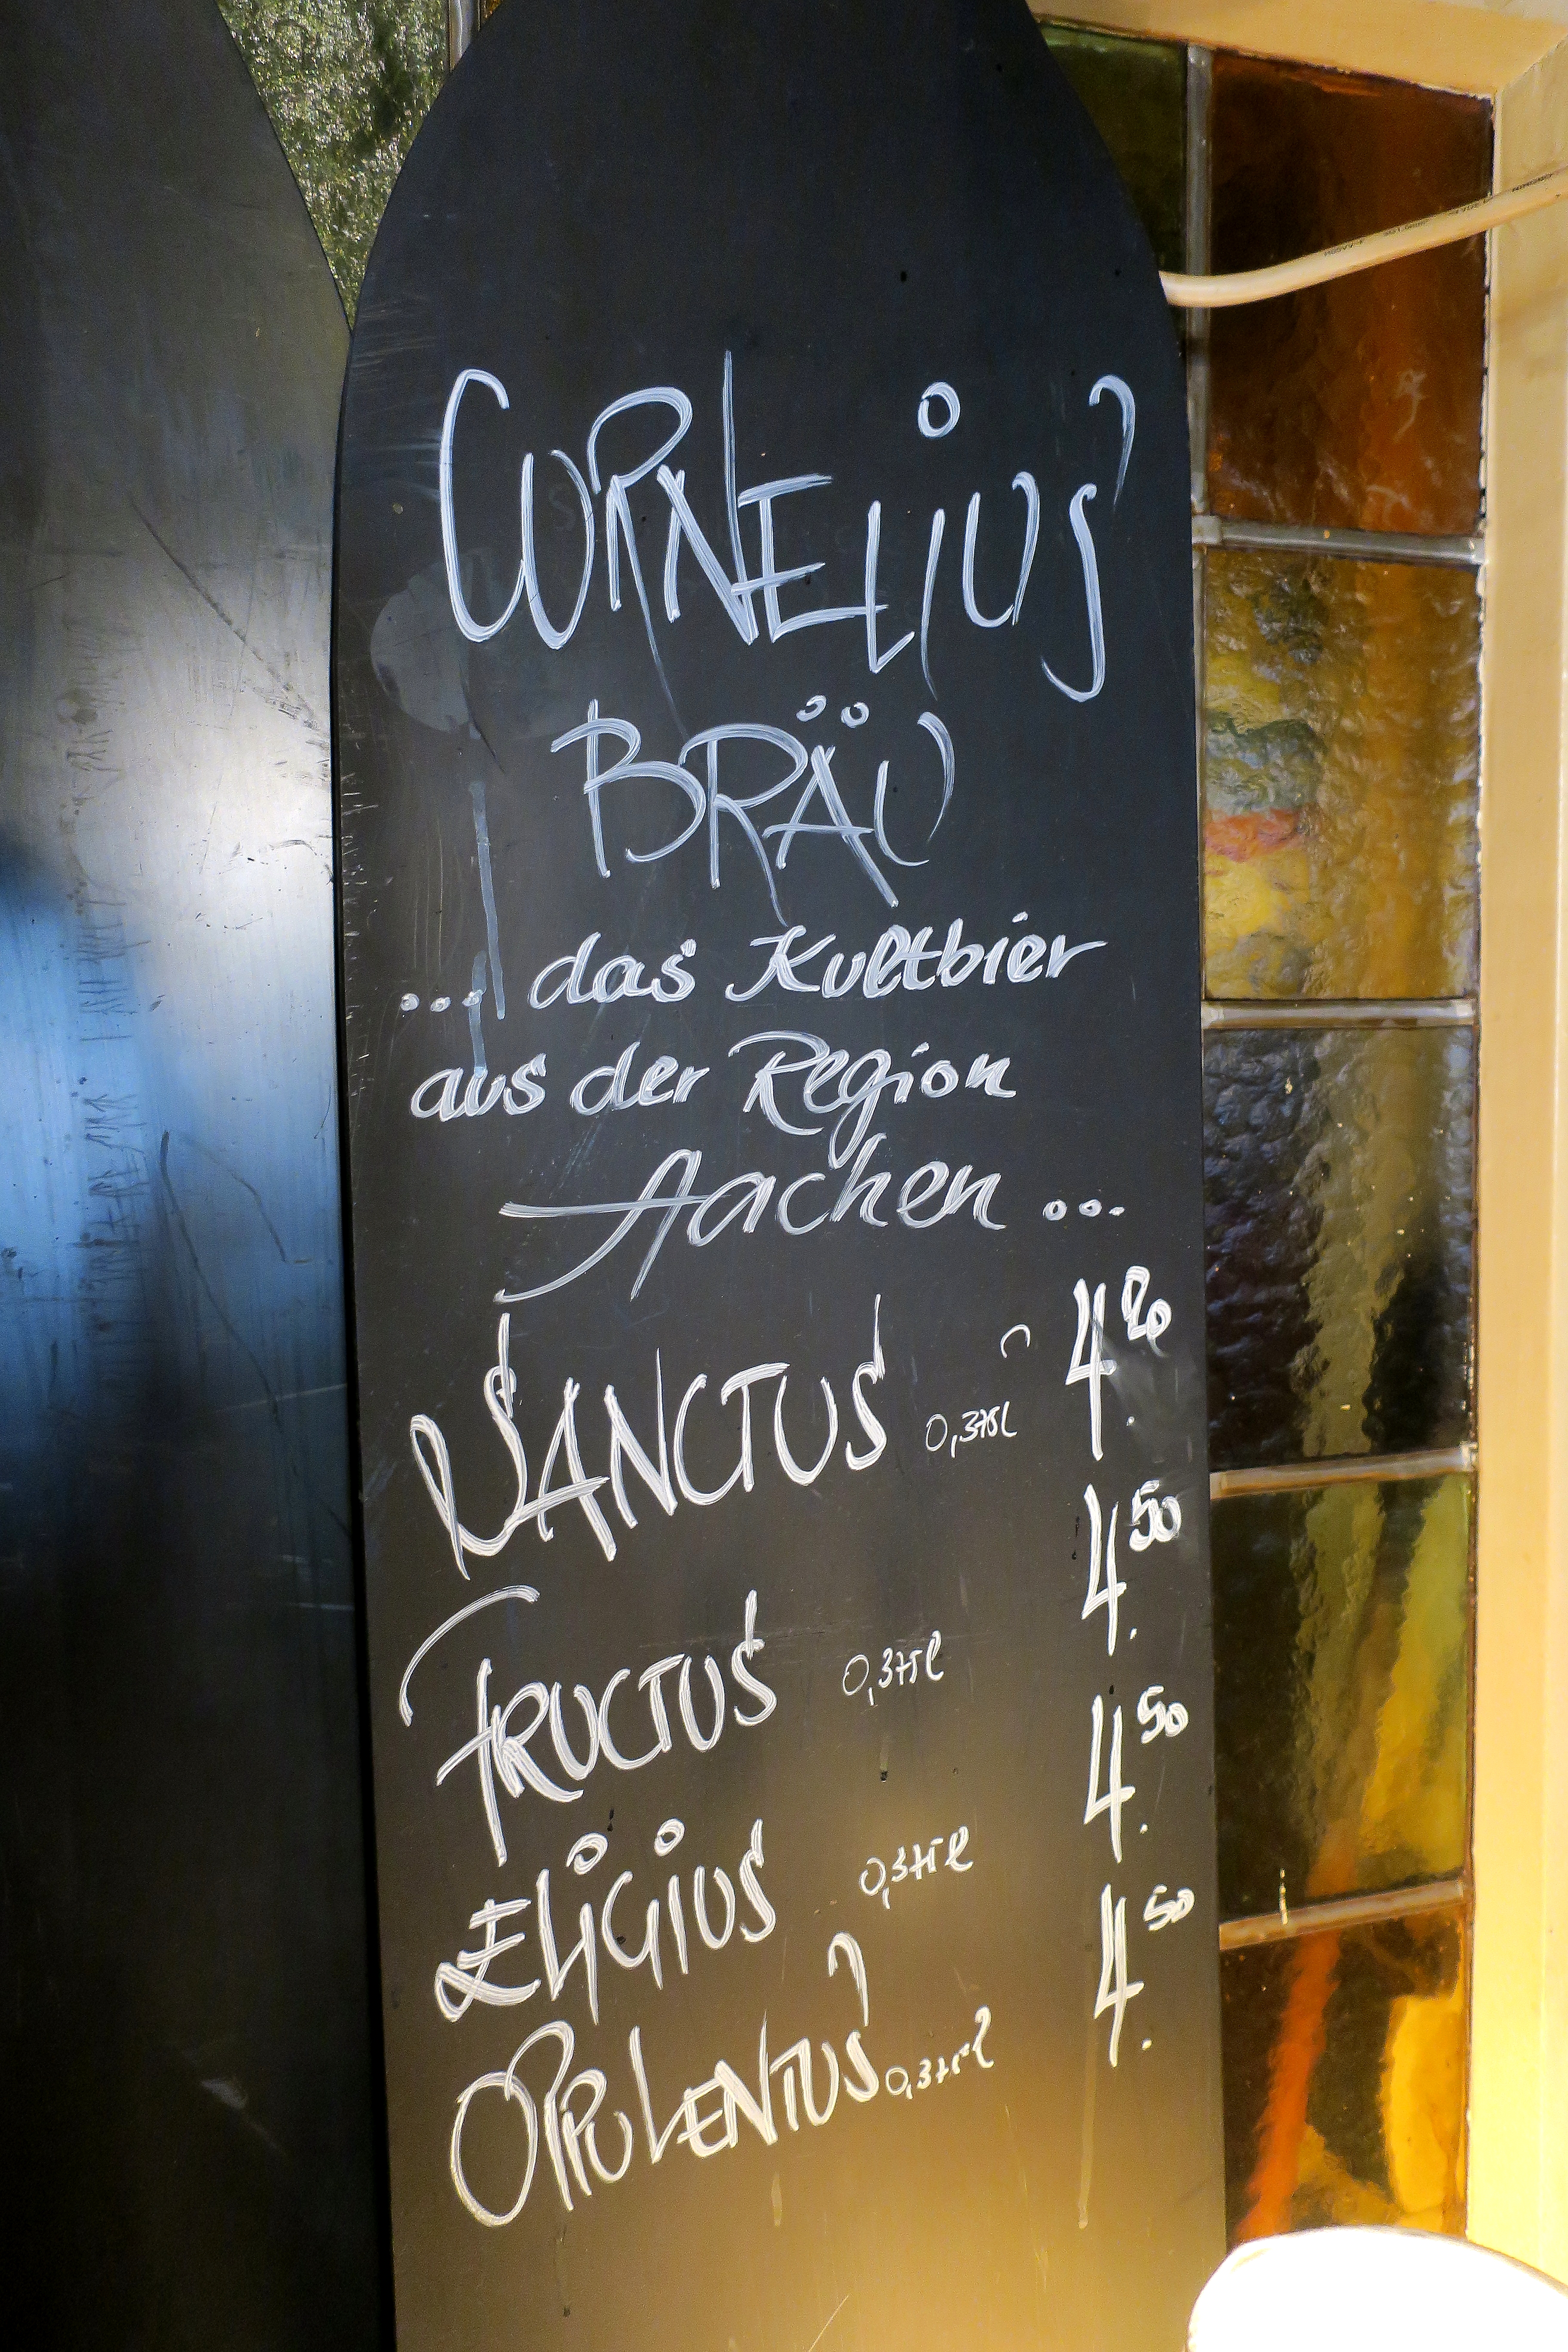 CORNELIUS
BRÄU
... das Kultbier
aus der Region
Aachen ...
SANCTUS 0,375l 4.20
FRUCTUS 0,375l 4.50
ELIGIUS 0,375l 4.50
OPULENTUS 0,375l 4.50